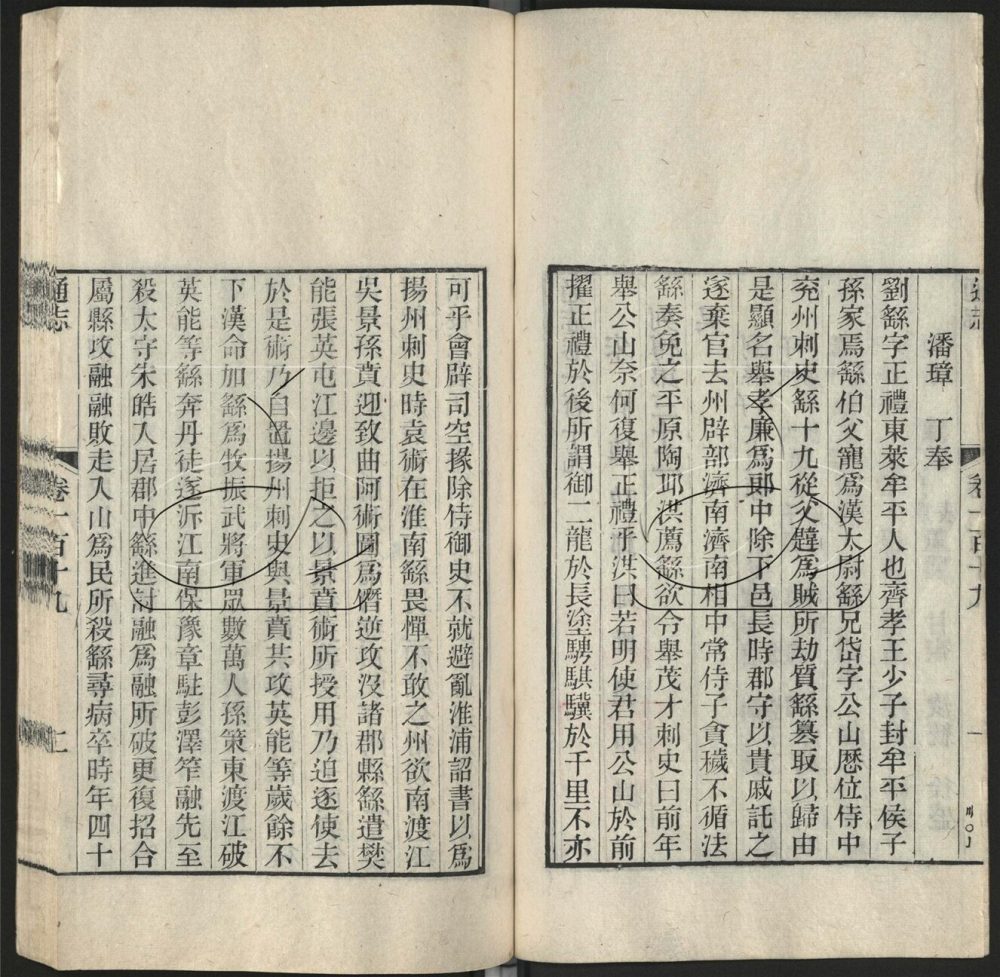 潘璋　丁奉
劉繇字正禮東萊牟平人也齊孝王少子封牟平侯子
孫家焉繇伯父寵爲漢太尉繇兄岱字公山歷位侍中
兖州刺史繇十九從父韙爲賊所劫質繇篡取以歸由
是顯名舉孝廉爲郎中除下邑長時郡守以貴戚託之
遂棄官去州辟部濟南濟南相中常侍子貪穢不循法
繇奏免之平原陶邱洪薦繇欲令舉茂才刺史曰前年
舉公山奈何復舉正禮乎洪曰若明使君用公山於前
擢正禮於後所謂御二龍於長塗騁騏驥於千里不亦
可乎會辟司空掾除侍御史不就避亂淮浦詔書以爲
揚州刺史時袁術在淮南繇畏憚不敢之州欲南渡江
吳景孫賁迎致曲阿術圖爲僭逆攻沒諸郡縣繇遣樊
能張英屯江邊以拒之以景賁術所授用乃迫逐使去
於是術乃自置揚州刺史與景賁共攻英能等歲餘不
下漢命加繇爲牧振武將軍眾數萬人孫策東渡江破
英能等繇奔丹徒遂泝江南保豫章駐彭澤笮融先至
殺太守朱皓入居郡中繇進討融爲融所破更復招合
屬縣攻融融敗走入山爲民所殺繇尋病卒時年四十
通志
卷一百十九
二